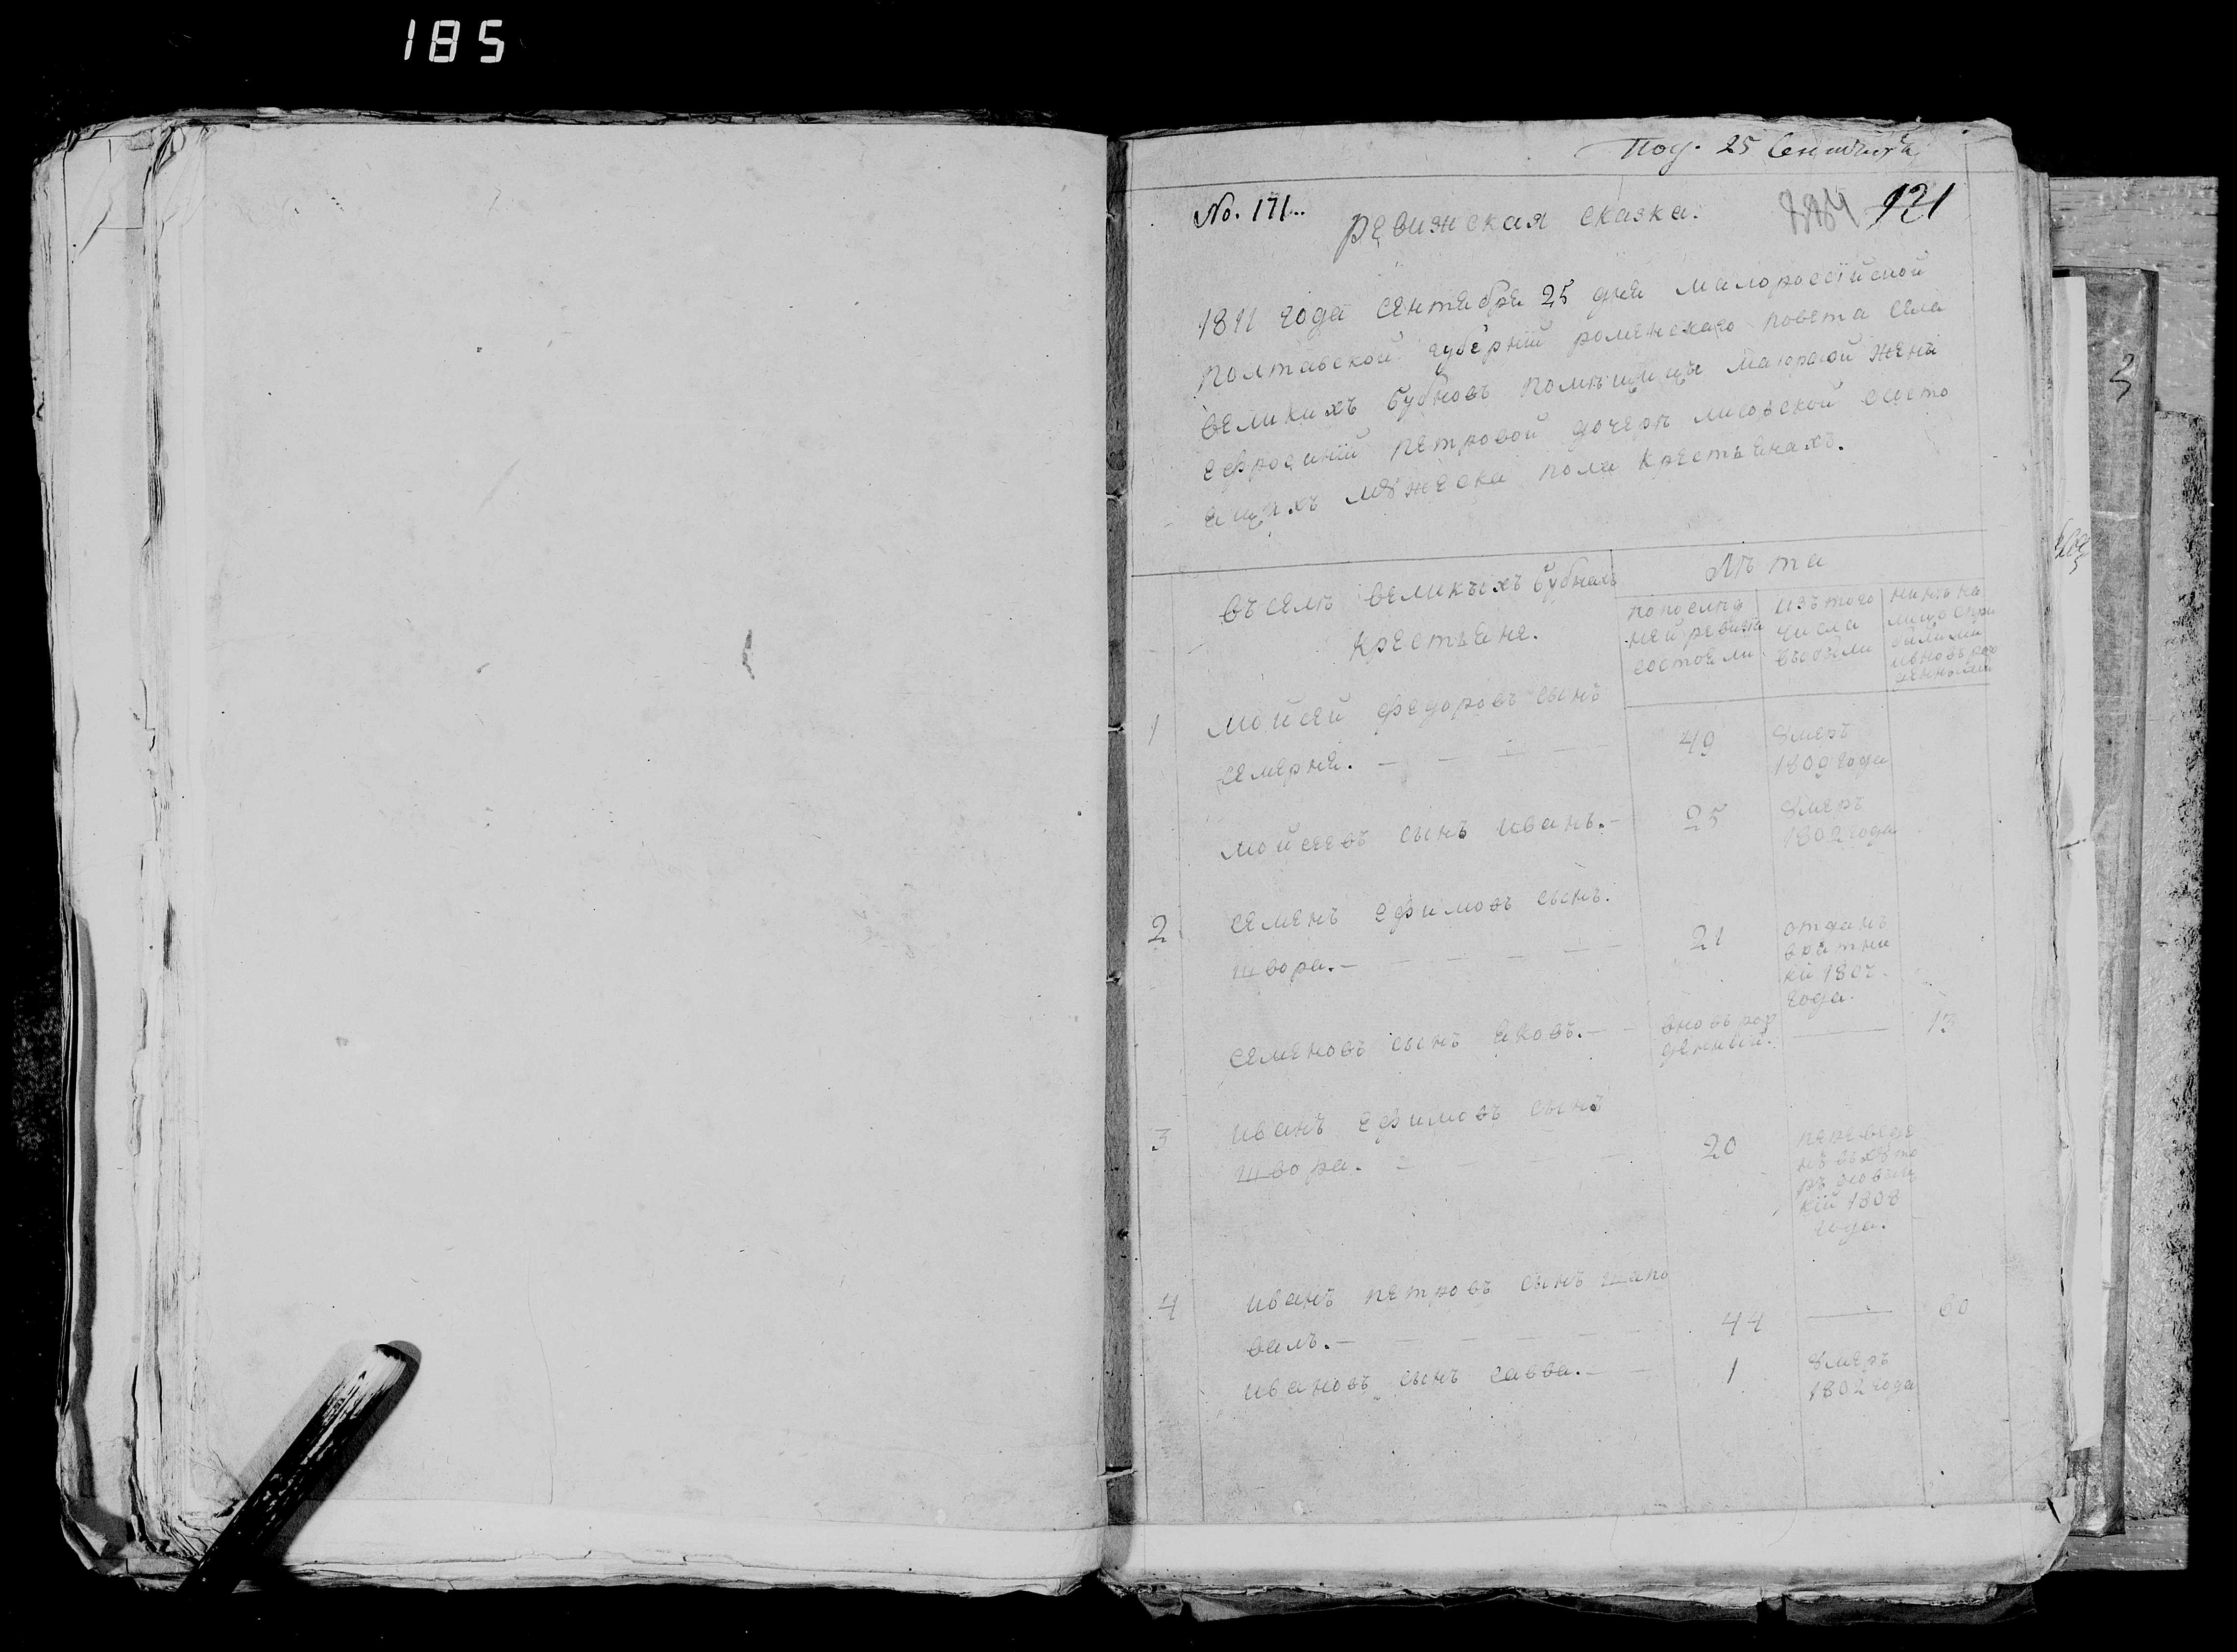 185
Под. 25 Сентября
No. 171..
121
ревизская сказка.
1811 года сентебря 25 дня малороссїйской
полтавской губернїй роменскаго повета села
великихъ бубновъ помѣщицы маіорской жены
ефросинїй петровой дочерѣ лисовской состо
ящихъ мужеска пола крестьянахъ.
въ селѣ великъихъ бубнахъ
крестьяне.
Лѣта
по послѣд
ней ревизїи
состояли
изъ того
числа
выбыли
нынѣ на
лицо
1
мойсей федоровъ сынъ
семерня.
49
умеръ
1809 года
мойсеевъ сынъ иванъ.
25
умеръ
1802 года
2
семенъ ефимовъ сынъ.
швора.
21
отданъ
года.
семеновъ сынъ яковъ.
вновь рож
денный.
13
3
иванъ ефимовъ сынъ
швора.
20
переведе
нъ въ хуто
ръ
кїй 1808
года.
4
иванъ петровъ сынъ шапо
валъ.
44
60
ивановъ сынъ савва.
1
умеръ
1802 года